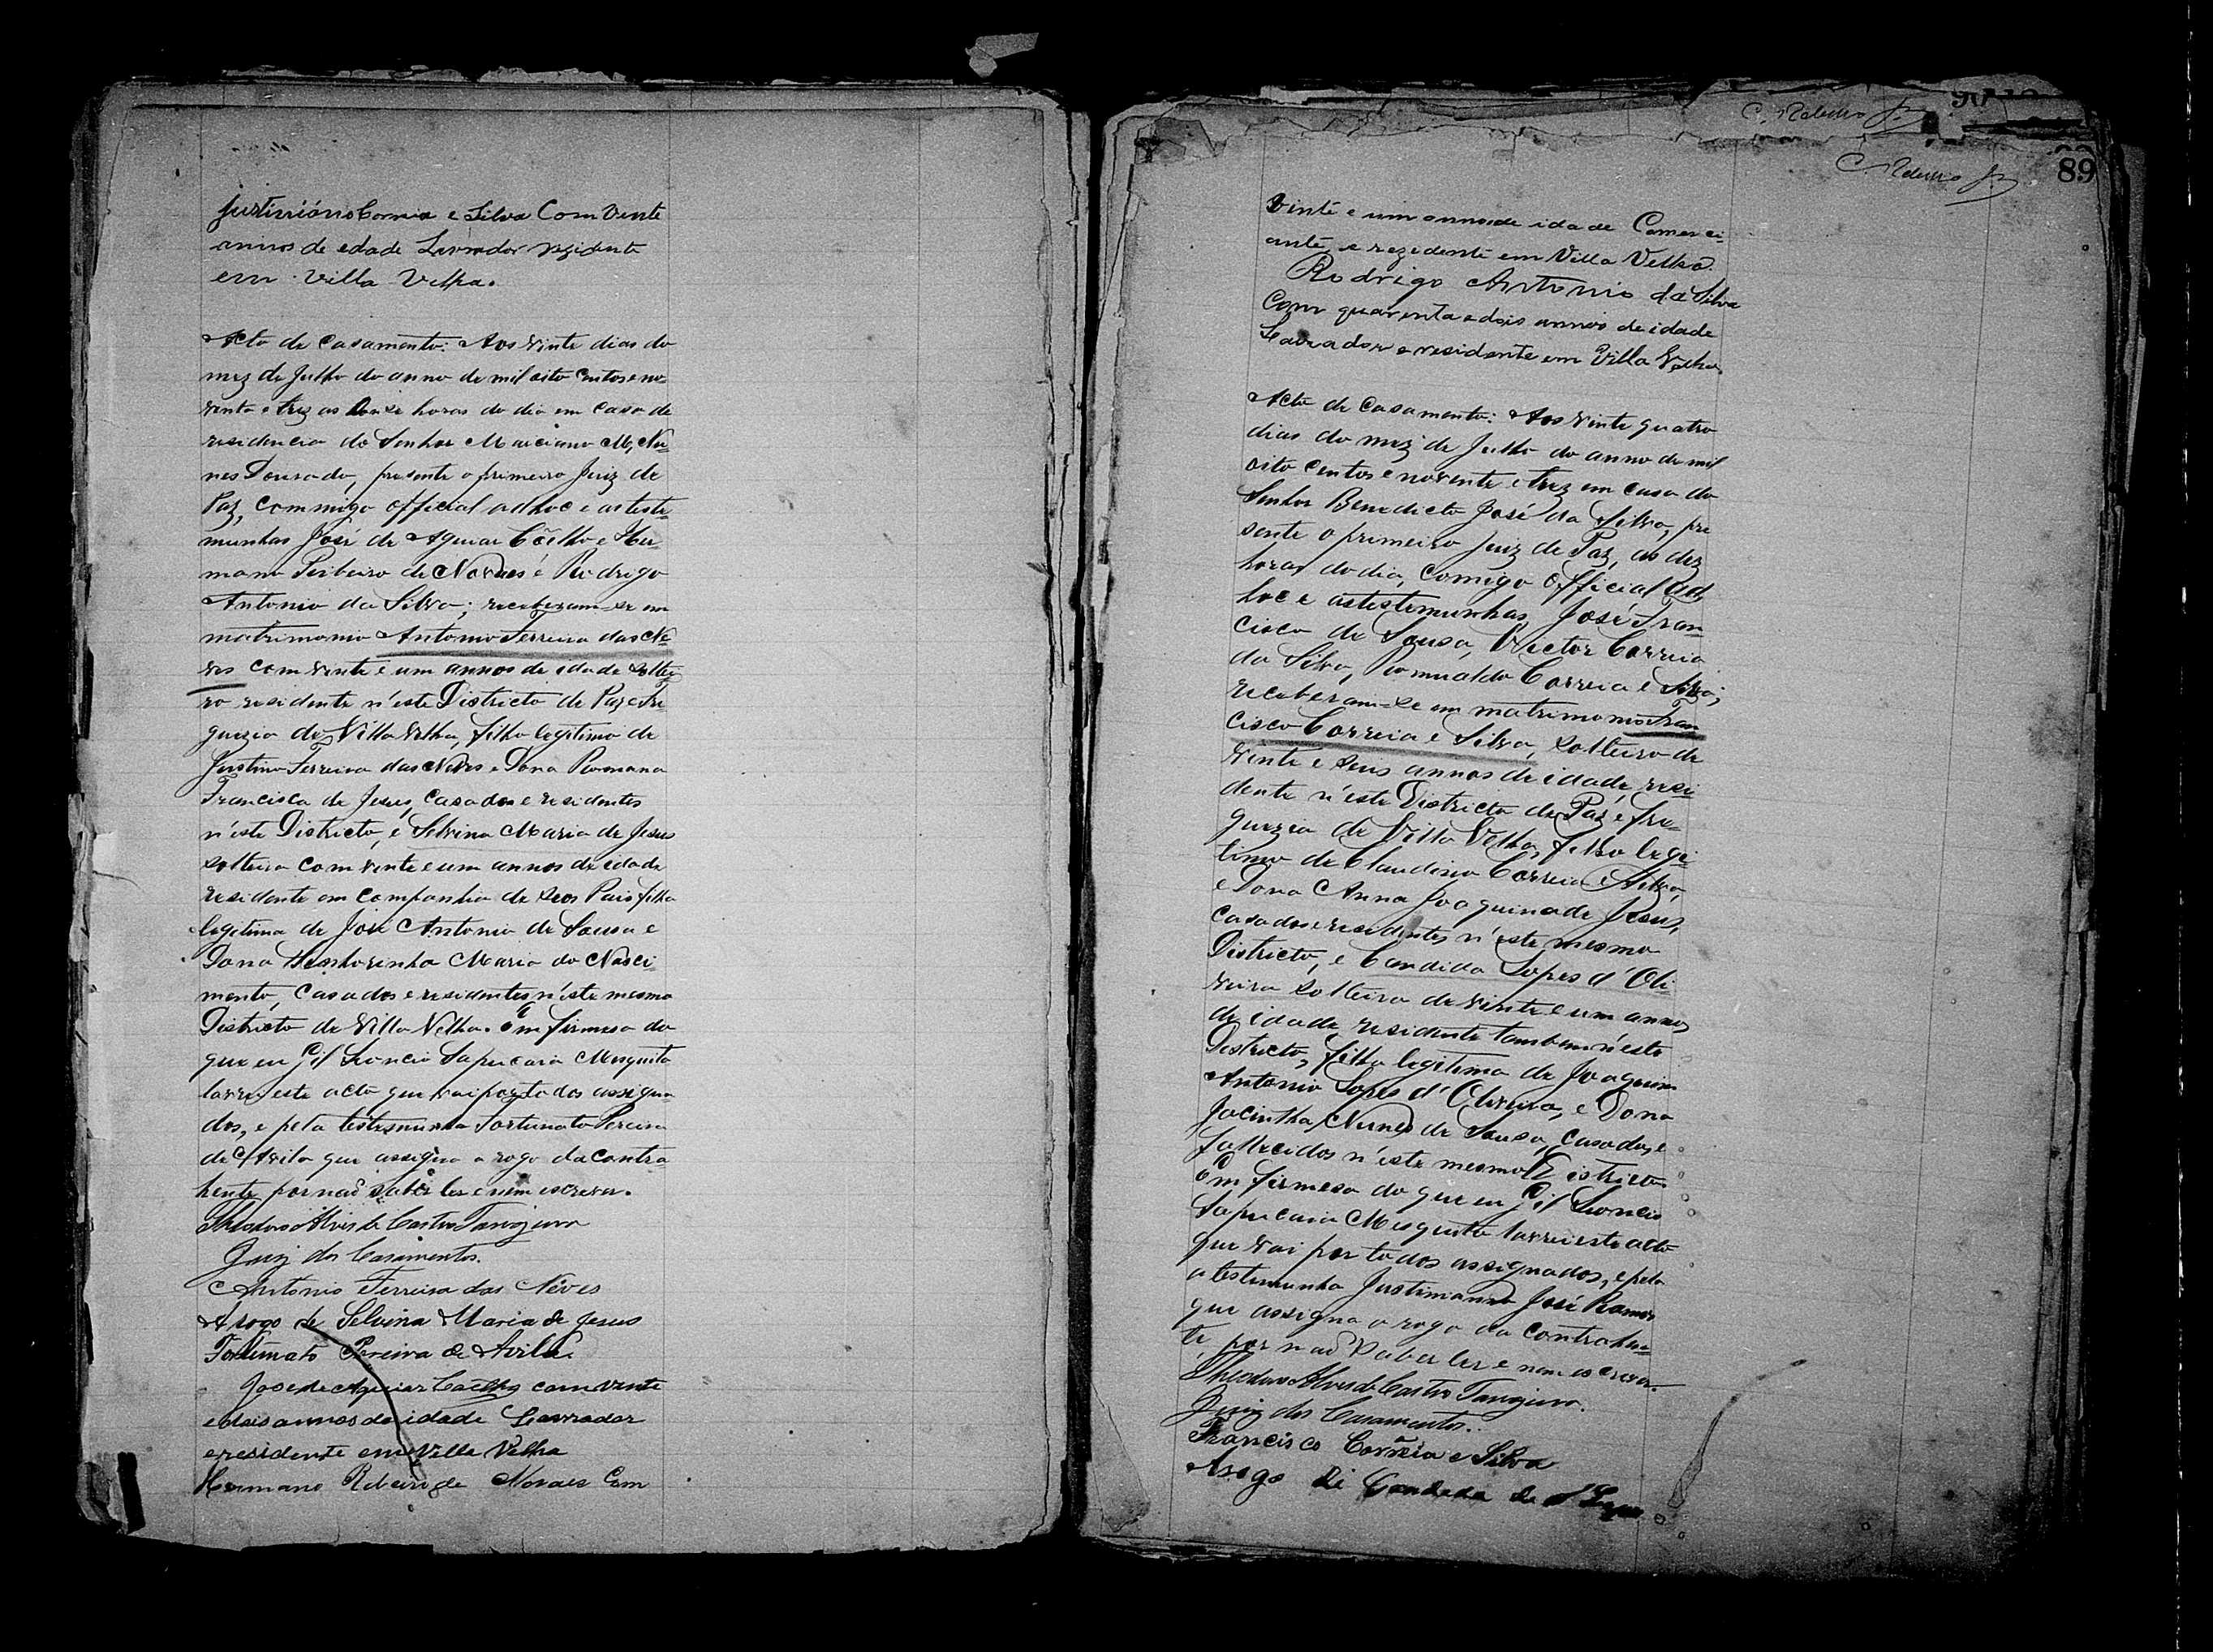 Justiniano Correia e Silva Com Vinte
annos de edade Lavrador rezidente
em Villa Velha.
Acto de Casamento: Aos vinte dias do
mez de Julho do anno de mil oito centos e no-
venta e trez as horas do dia em Casa de
residencia do Senhor Marciano M, Nu-
nes Dourado, presente o primeiro Juiz de
Paz, commigo official adhoc e as teste-
munhas José de Aguiar Coêlho e Her-
mano Ribeiro de Novaes e Rodrigo
Antonio da Silva; receberam-se em
matrimonio Antonio Ferreira das Ne-
ves com vinte e um annos de idade soltei-
ro residente n'este Districto de Paz e Fre-
guezia de Villa Velha, filho legitimo de
Justino Ferreira das Neves e Dona Romana
Francisca de Jesus, Casados e residentes
n'este Districto, e Selvina Maria de Jesus
solteira com vinte e um annos de idade
residente em companhia de seos Pais filha
legitima de José Antonio de Sousa e
Dona Senhorinha Maria do Nasci-
mento, Casados e residentes n'este mesmo
Districto de Villa Velha. Em firmesa do
que eu Gil Leoncio Sapucaia Mesquita
lavrei este acto que vai por todos assigna-
dos, e pela testemunha Fortunato Pereira
de Avila que assigna a rogo da contra-
hente por naõ saber ler e nem escrever.
Theodoro Alves de Castro Tanajura
Juiz dos Casamentos.
Antonio Ferreira das Nêves
A rogo de Selvina Maria de Jesus
Fortunato Pereira de Avila.
Jose de Aguiar Coelho com vinte
e dois annos de idade Lavrador
e residente em Villa Velha
Hermano Ribeiro de Novaes Com
C. Rebello Jr.
C. Rebello Jr.
89
Vinte e um annos de idade Comerci-
ante e rezedente em Villa Velha.
Rodrigo Antonio da Silva
Com quarenta e dois annos de idade
Lavrador e residente em Villa Velha.
Acto de Casamento: Aos vinte quatro
dias do mez de Julho do anno de mil
oito centos e noventa e trez em casa do
Senhor Benedicto José da Silva, pre
sente o primeiro Juiz de Paz, as dez
horas do dia, Comigo Official ad,
hoc e as testemunhas, José Fran-
cisco de Sousa, Victor Correia
da Silva, Romualdo Correia e Silva;
receberam-se em matrimonio Fran-
cisco Correia e Silva, solteiro de
vinte e seus annos de idade, resi-
dente n'este Districto de Paz e fre-
guezia de Villa Velha, filho legi-
timo de Claudino Correia e Silva,
e Dona Anna Joaquina de Jesus,
Casados e residentes n'este mesmo
Districto, e Candida Lopes d'Oli-
veira solteira de vinte e um annos
de idade, residente tambem n'este
Districto, filha legitima de Joaquim
Antonio Lopes d'Oliveira, e Dona
Jacintha Nunes de Sousa, casados, e
fallecidos n'este mesmo Districto
Em firmesa do que eu Gil Leoncio
Sapucaia Mesquita lavrei este acto
que vai por todos assignados, e pela
a testemunha Justimanno José Ramos
que assigna a rogo da contrahen-
te, por naõ saber ler e nem escrever.
Theodoro Alves de Castro Tanajura.
Juiz dos Casamentos.
Francisco Corrêia e Silva
Arogo di Candeda de